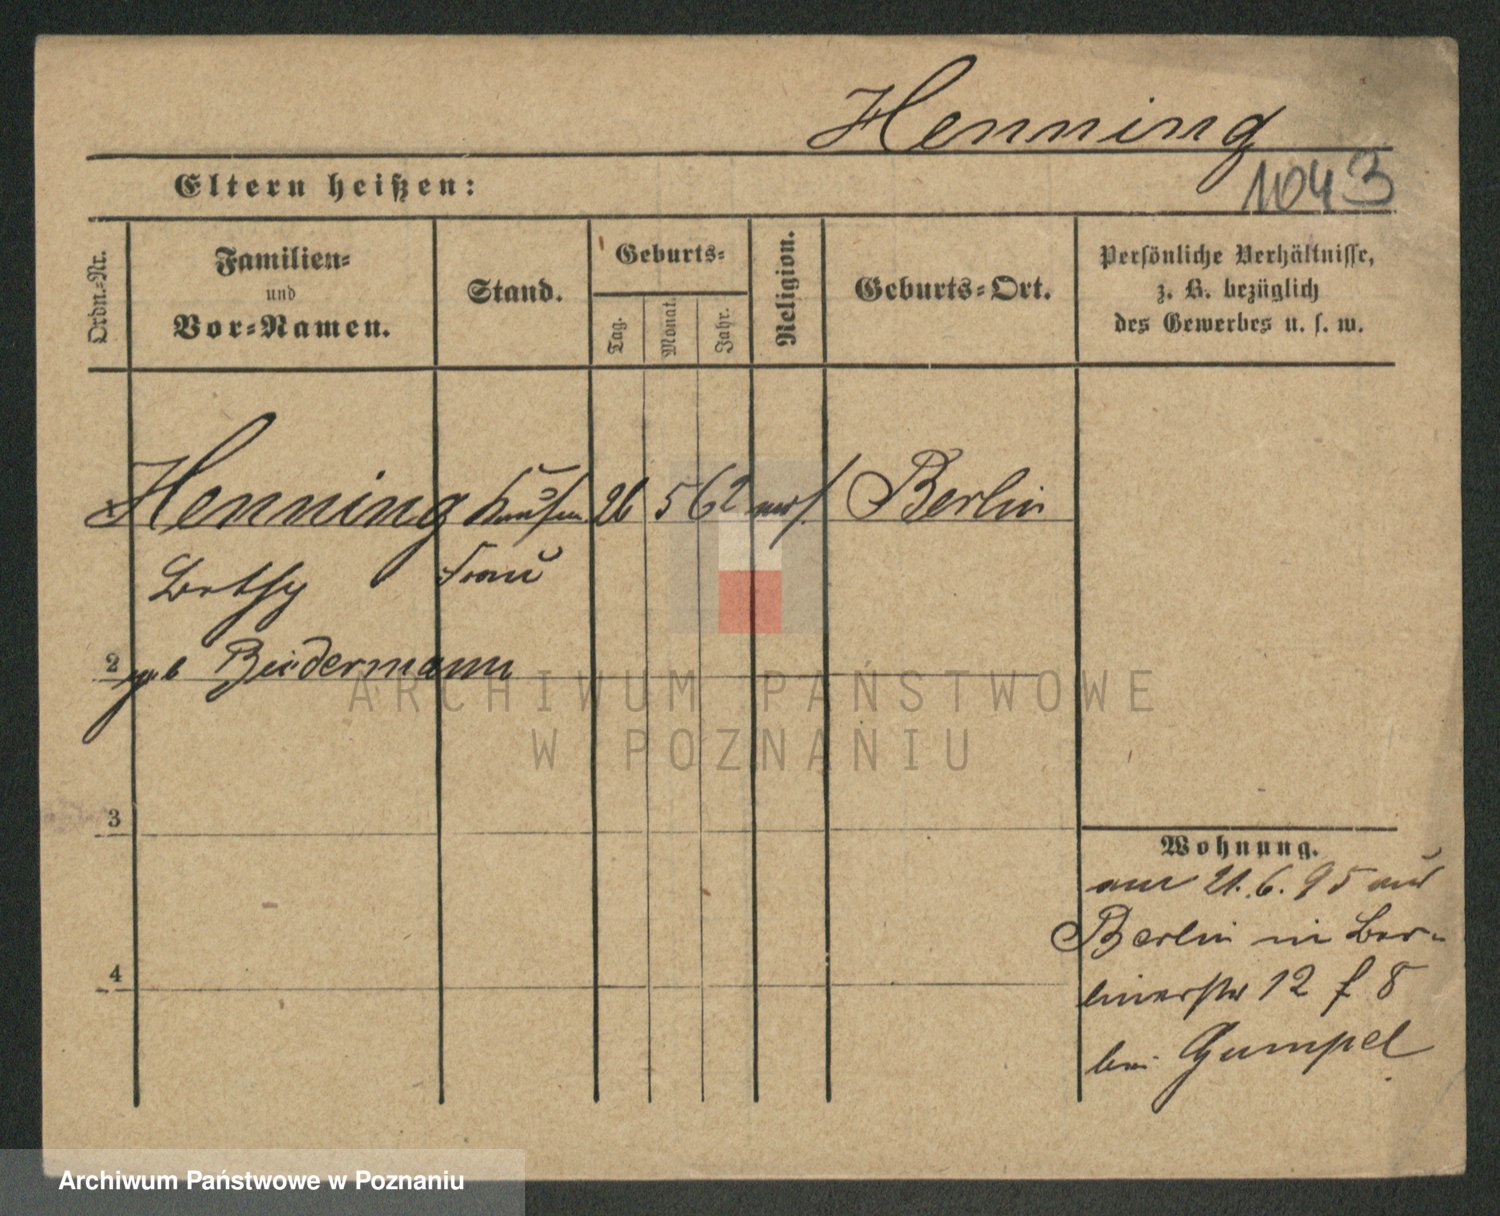 Henning
1043
Eltern heißen:
Ordn.-Nr.
Familien-
und
Vor-Namen.
Stand.
Geburts-
Tag.
Monat.
Jahr.
Religion.
Geburts-Ort.
Persönliche Verhältnisse,
z. B. bezüglich
des Gewerbes u. s. w.
Henning Kaufm 26 5 62 mos. Berlin
Betsy Frau
2 geb Biedermann
ARCHIWUM PAŃSTWOWE
W POZNANIU
3
4
Wohnung.
am 21.6.95 aus
Berlin in Ber-
linerstr 12 f 8
bei Gumpel
Archiwum Państwowe w Poznaniu